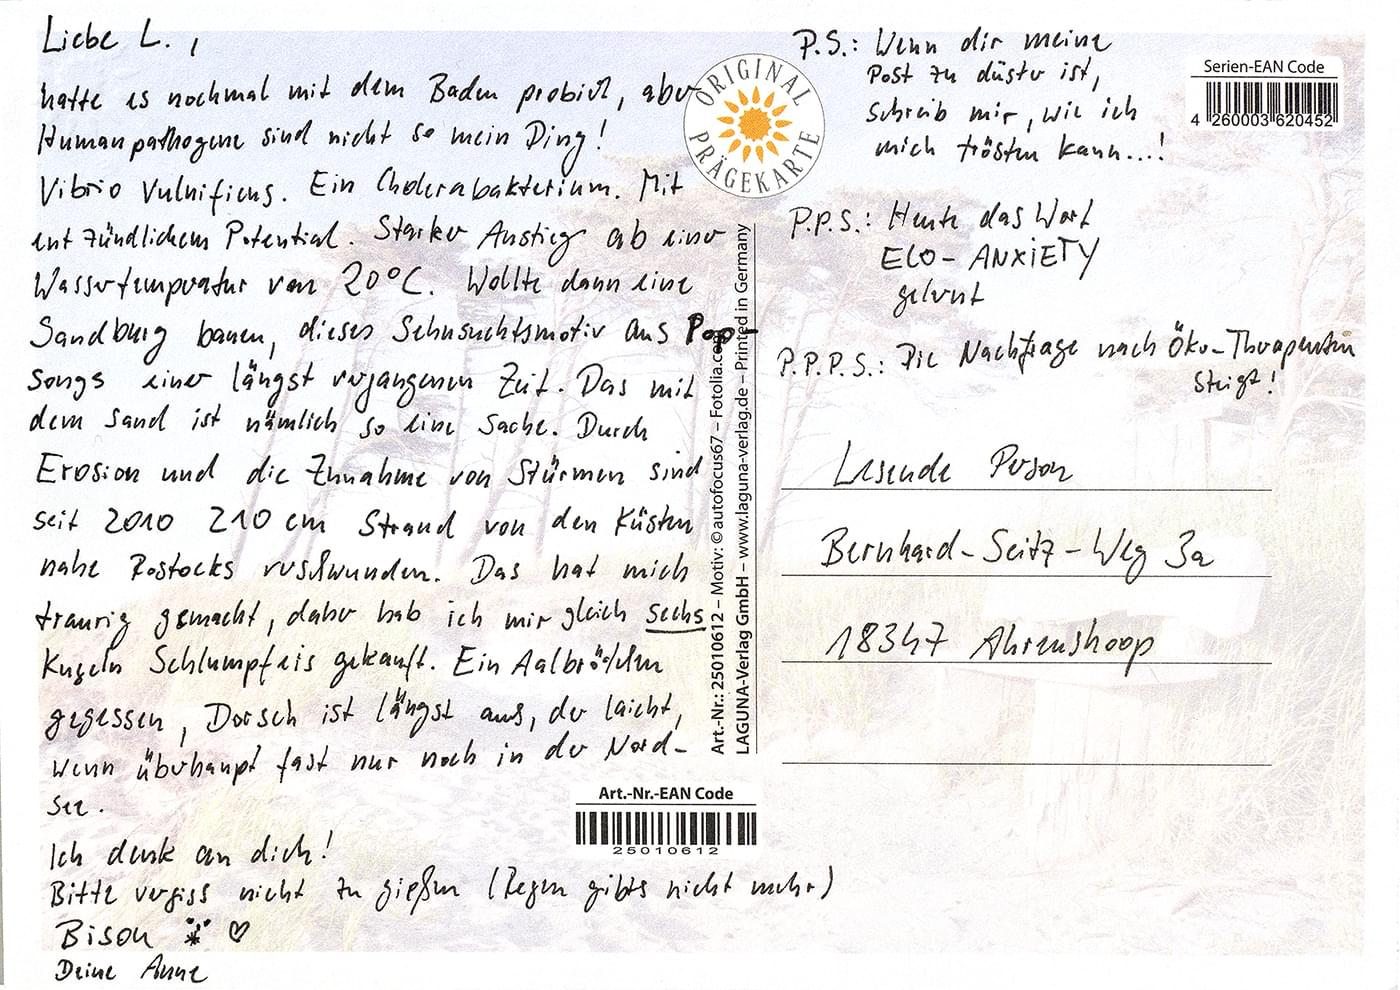 Liebe L.,
hatte es nochmal mit dem Baden probiert, aber
Humanpathogene sind nicht so mein Ding!
Vibrio Vulnificus. Ein Cholerabakterium. Mit
entzündlichem Potential. Starker Anstieg ab einer
Wassertemperatur von 20°C. Wollte dann eine
Sandburg bauen, dieses Sehnsuchtsmotiv aus Pop-
songs einer längst vergangenen Zeit. Das mit
dem Sand ist nämlich so eine Sache. Durch
Erosion und die Zunahme von Stürmen sind
seit 2010 210 cm Strand von den Küsten
nahe Rostocks verschwunden. Das hat mich
traurig gemacht, daher hab ich mir gleich sechs
Kugeln Schlumpfeis gekauft. Ein Aalbrötchen
gegessen, Dorsch ist längst aus, der laicht,
wenn überhaupt fast nur noch in der Nord-
see.
Ich denk an dich!
Bitte vergiss nicht zu gießen (Regen gibts nicht mehr)
Bison ♡
Deine Anne
ORIGINAL
PRÄGEKARTE
P.S.: Wenn dir meine
Post zu düster ist,
schreib mir, wie ich
mich trösten kann...!
P.P.S.: Heute das Wort
ECO-ANXiETY
gelernt
P.P.P.S.: Die Nachfrage nach Öko-Therapeuten
steigt!
Serien-EAN Code
4 260003 620452
Lesende Person
Bernhard-Seitz-Weg 3a
18347 Ahrenshoop
Art.-Nr.: 25010612 – Motiv: © autofocus67 – Fotolia.com
LAGUNA-Verlag GmbH – www.laguna-verlag.de – Printed in Germany
Art.-Nr.-EAN Code
25010612